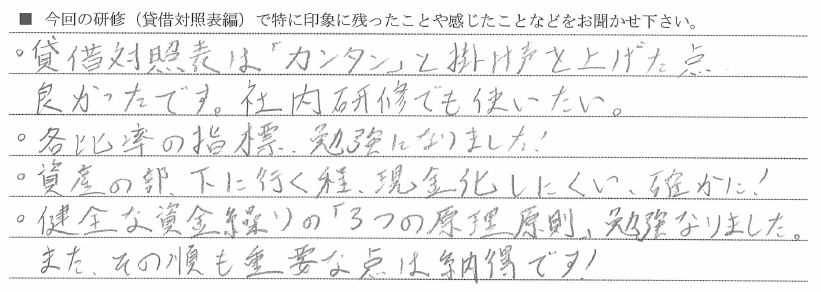 ■ 今回の研修（貸借対照表編）で特に印象に残ったことや感じたことなどをお聞かせ下さい。
○貸借対照表は「カンタン」と掛け声を上げた点
良かったです。社内研修でも使いたい。
○各比率の指標、勉強になりました！
○資産の部、下に行く程、現金化しにくい、確かに！
○健全な資金繰りの「3つの原理原則」勉強なりました。
また、その順も重要な点は納得です！